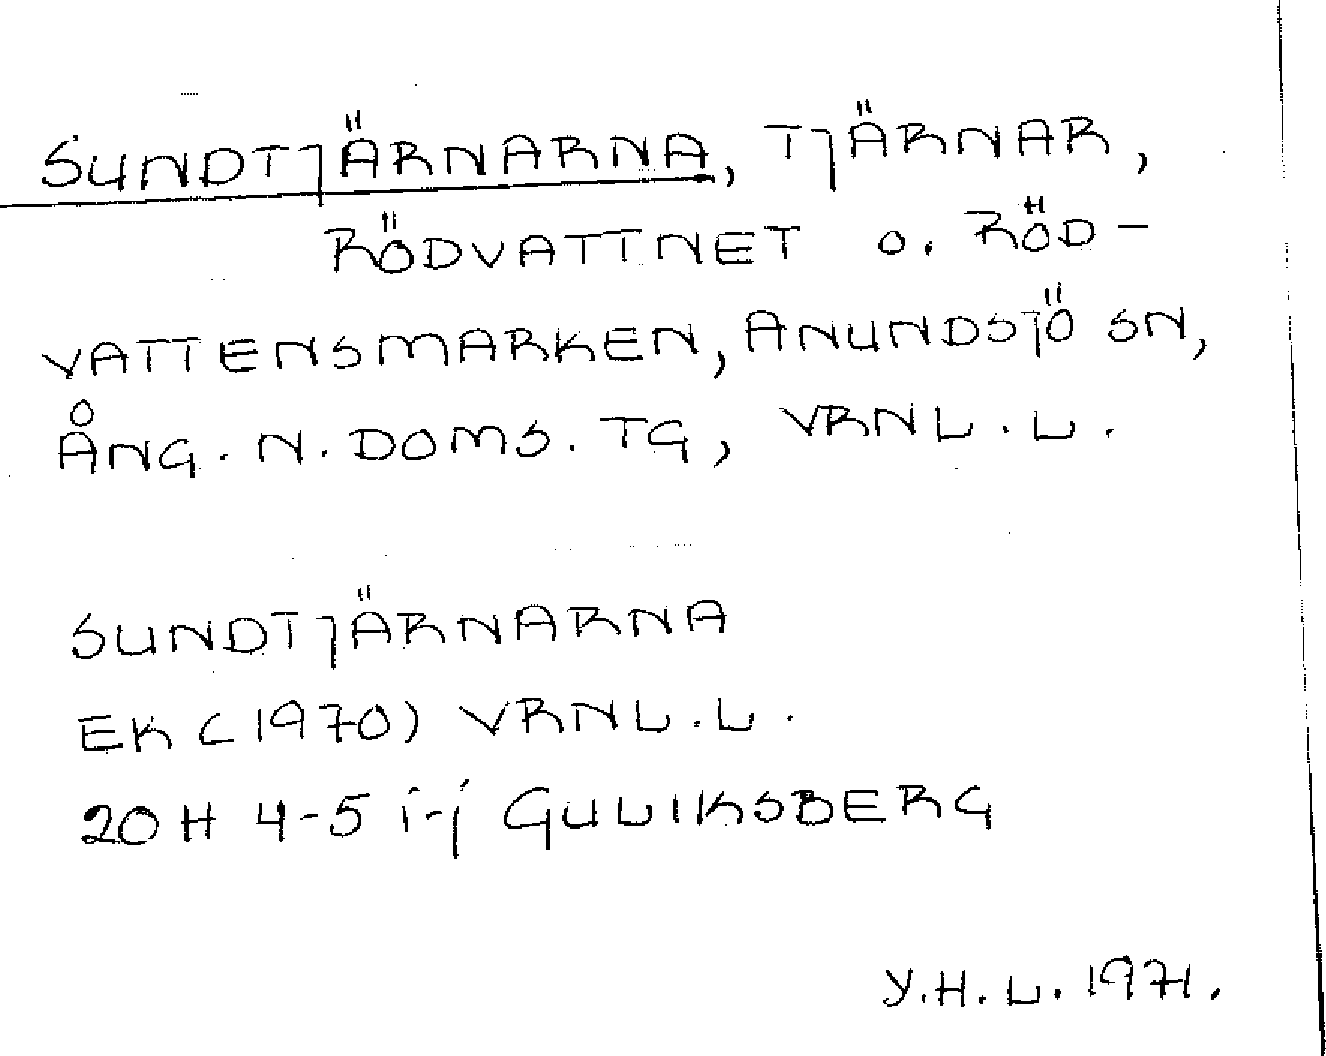 SUNDTJÄRNARNA, TJÄRNAR,
RÖDVATTNET o. RÖD-
VATTENSMARKEN, ANUNDSJÖ SN,
ÅNG. N. DOMS. TG, VRNL. L.
SUNDTJÄRNARNA
EK (1970) VRNL. L.
20 H 4-5 i-j GULIKSBERG
Y. H. L. 1971.